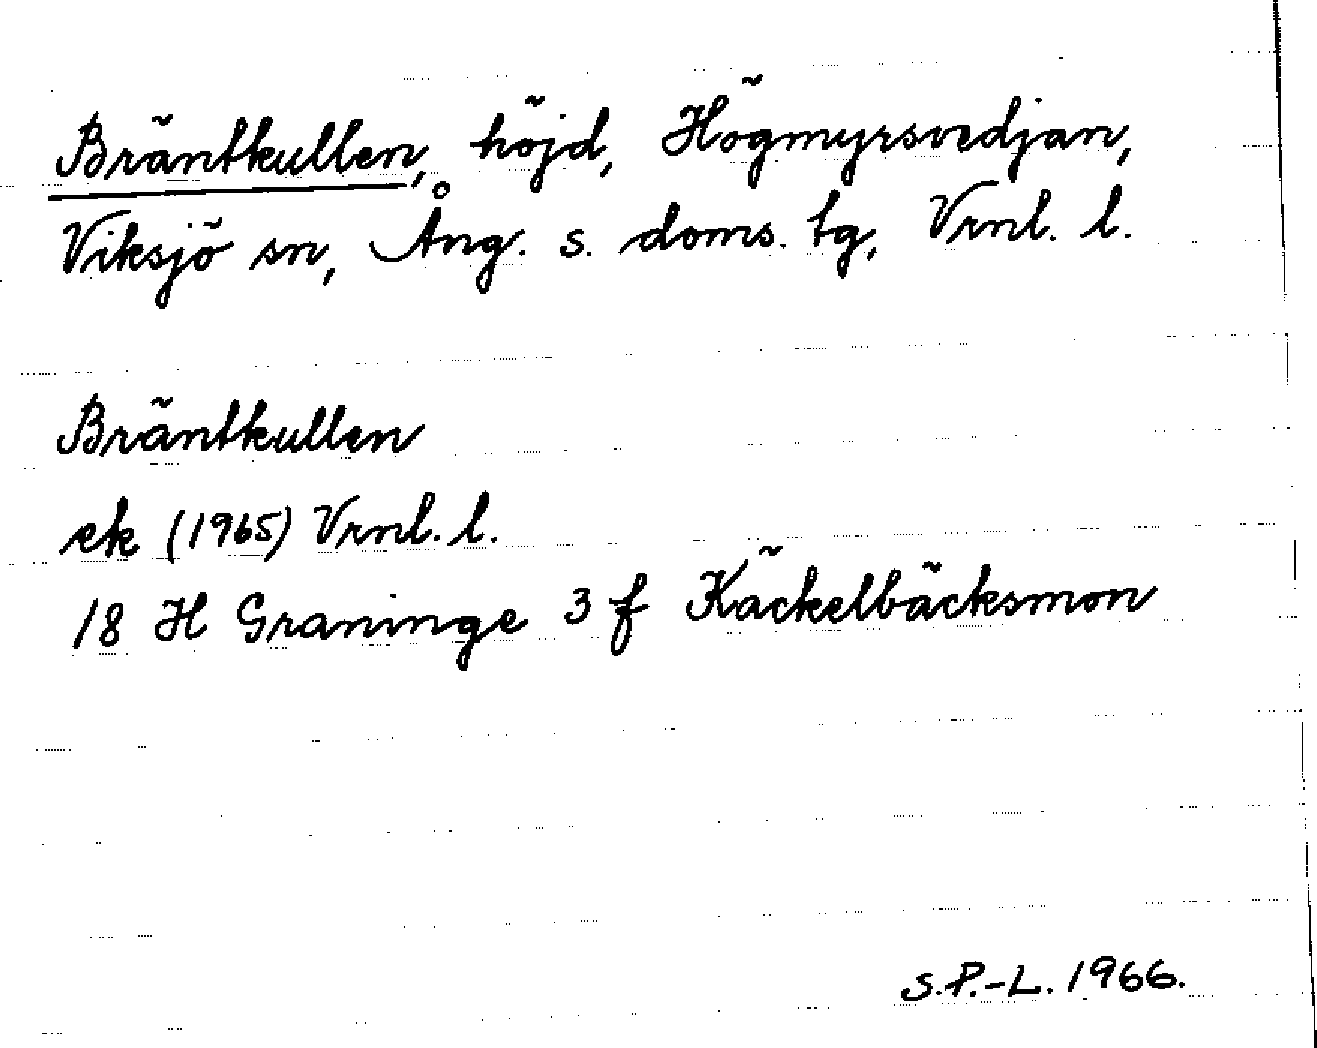 Bräntkullen, höjd, Högmyrsvedjan,
Viksjö sn, Ång. s. doms. tg, Vrnl. l.
Bräntkullen
ek (1965) Vrnl. l.
18 H Graninge 3 f Käckelbäcksmon
S.P.-L. 1966.